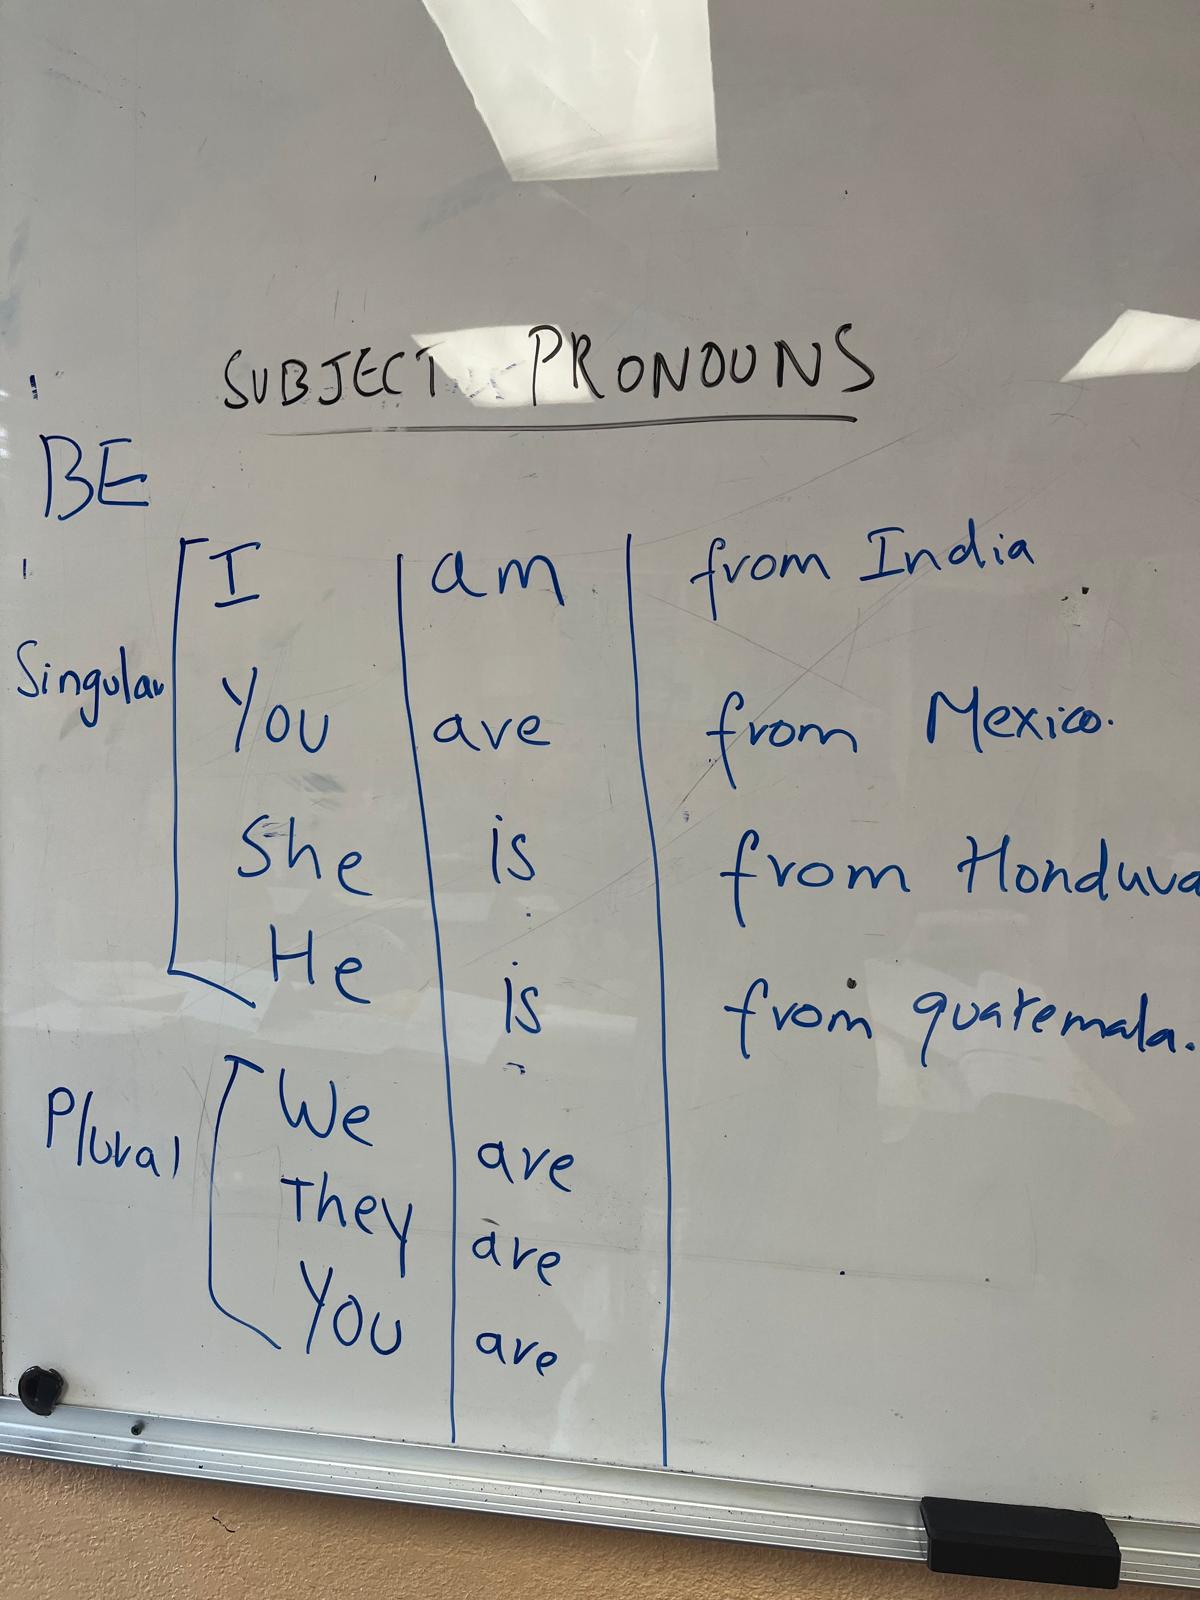 SUBJECT PRONOUNS
BE
Singular
I am from India
You are from Mexico.
She is from Hondura
He is from guatemala.
Plural
We are
They are
You are